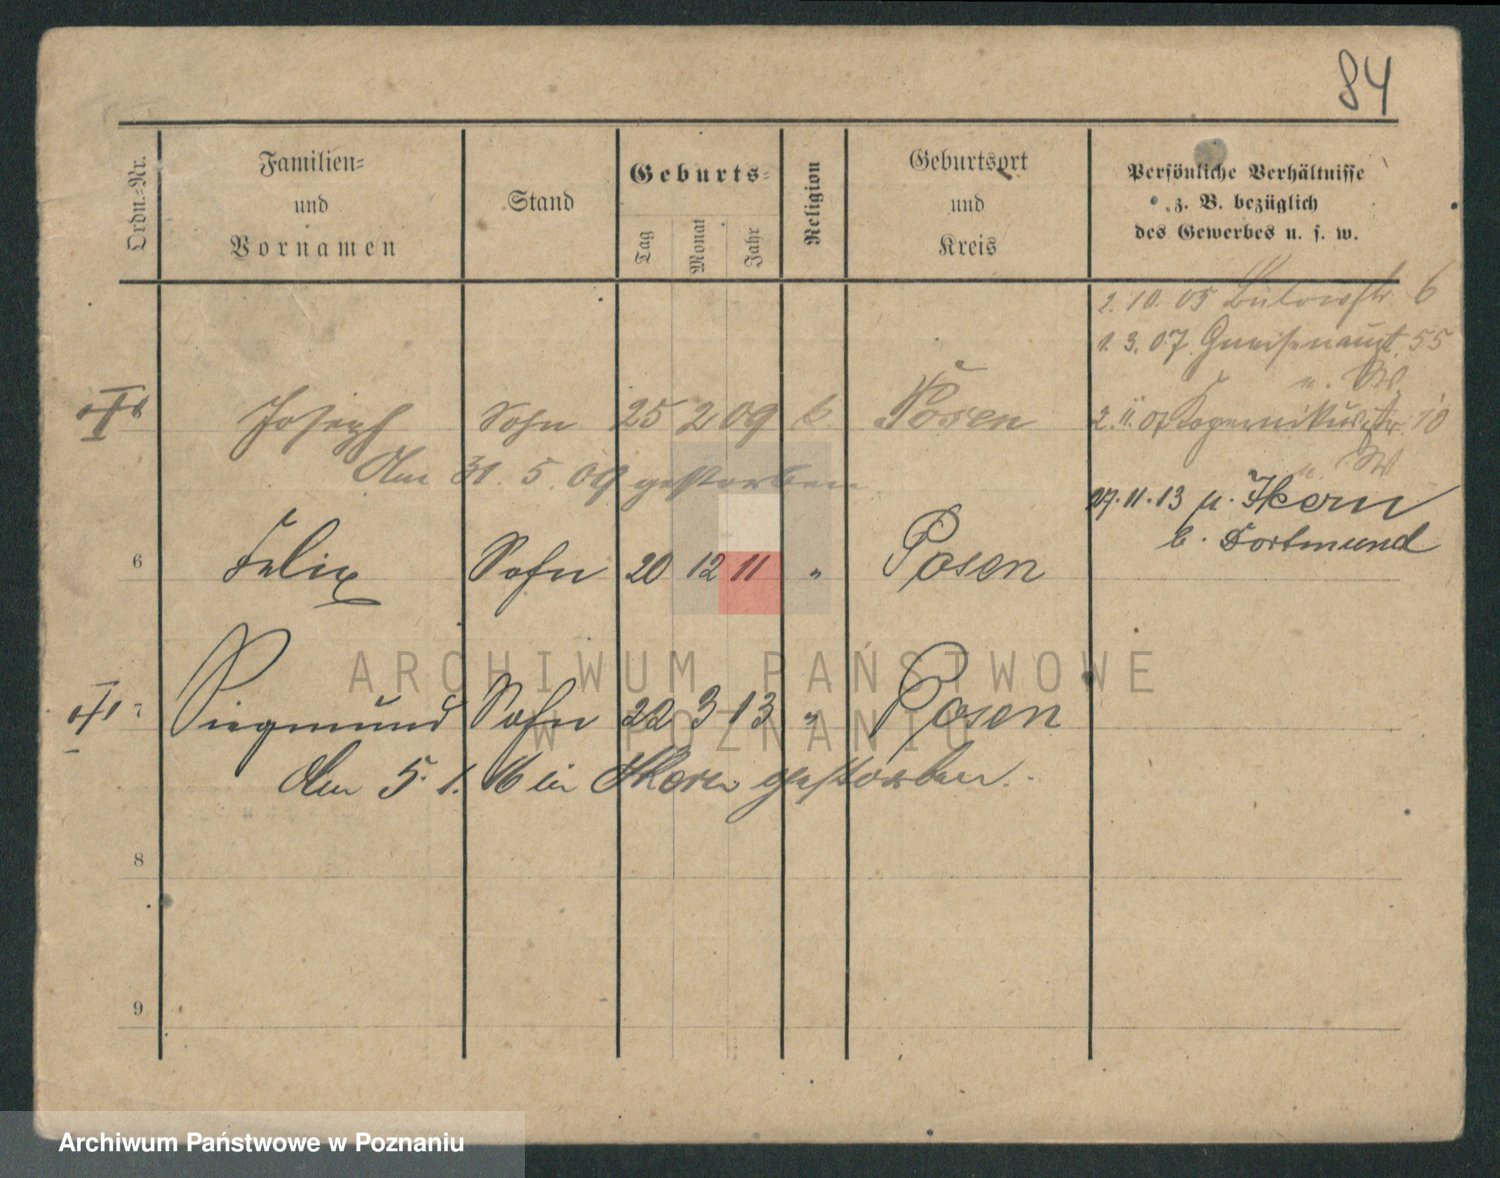 84
Ordn.=Nr.
Familien=
und
Vornamen
Stand
Geburts=
Tag
Monat
Jahr
Religion
Geburtsort
und
Kreis
Persönliche Verhältnisse
z. B. bezüglich
des Gewerbes u. s. w.
2. 10. 05 Bülowstr. 6
1. 3. 07. Gneisenaustr. 55
Joseph Sohn 25 2 09 k. Posen
2. 11. 07 Kopernikusstr. 10
Am 31. 5. 09 gestorben
27. 11. 13 n.
b. Dortmund
6 Felix Sohn 20 12 11 " Posen
7 Siegmund Sohn 22 3 13 " Posen
Am 5. 1. 16 in gestorben.
8
9
ARCHIWUM PAŃSTWOWE
W POZNANIU
Archiwum Państwowe w Poznaniu